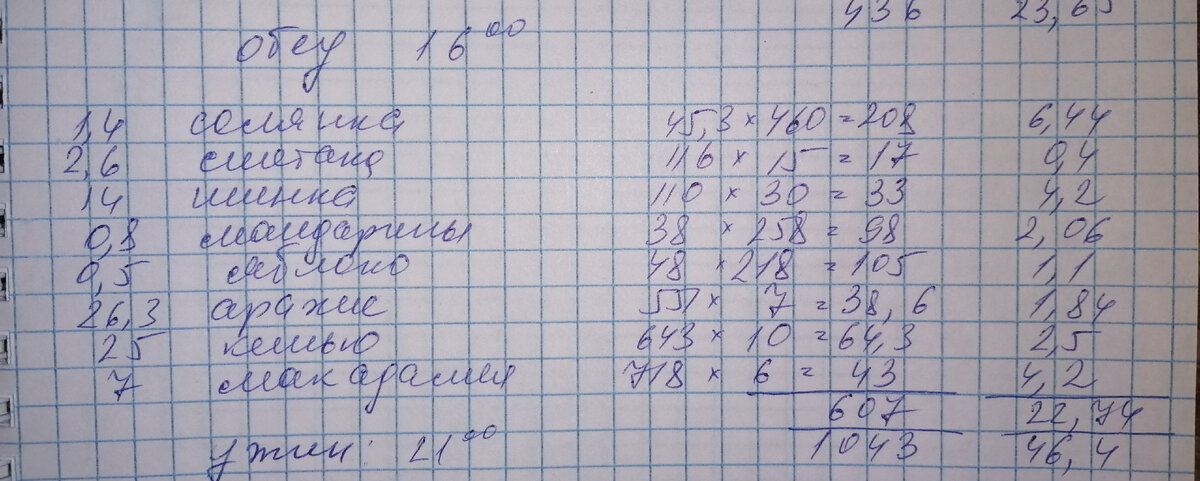 436 23,65
обед 16⁰⁰
1,4 солянка 45,3 × 460 = 208 6,44
2,6 сметана 116 × 15 = 17 0,4
14 шинка 110 × 30 = 33 4,2
0,8 мандарины 38 × 258 = 98 2,06
0,5 яблоко 48 × 218 = 105 1,1
26,3 арахис 551 × 7 = 38,6 1,84
25 кешью 643 × 10 = 64,3 2,5
7 макадамия 718 × 6 = 43 4,2
607 22,74
1043 46,4
ужин: 21⁰⁰